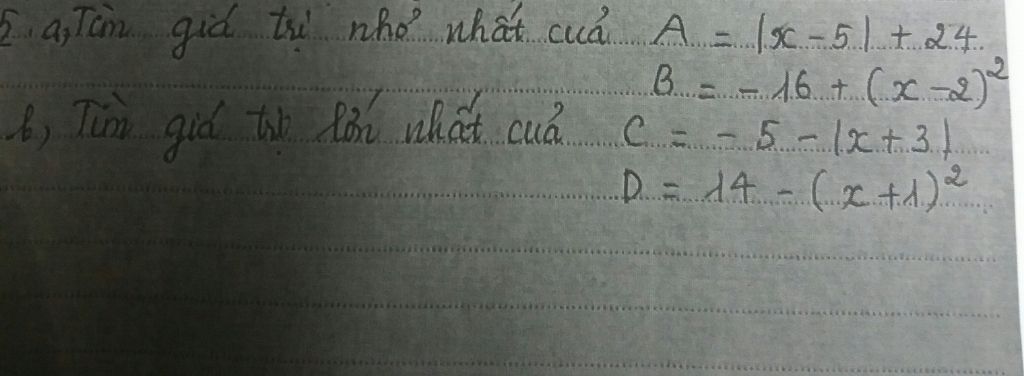 5. a, Tìm giá trị nhỏ nhất cuả A = |x - 5| + 24.
B = - 16 + (x - 2)²
b, Tìm giá trị lớn nhất cuả C = - 5 - |x + 3|
D = 14 - (x + 1)²